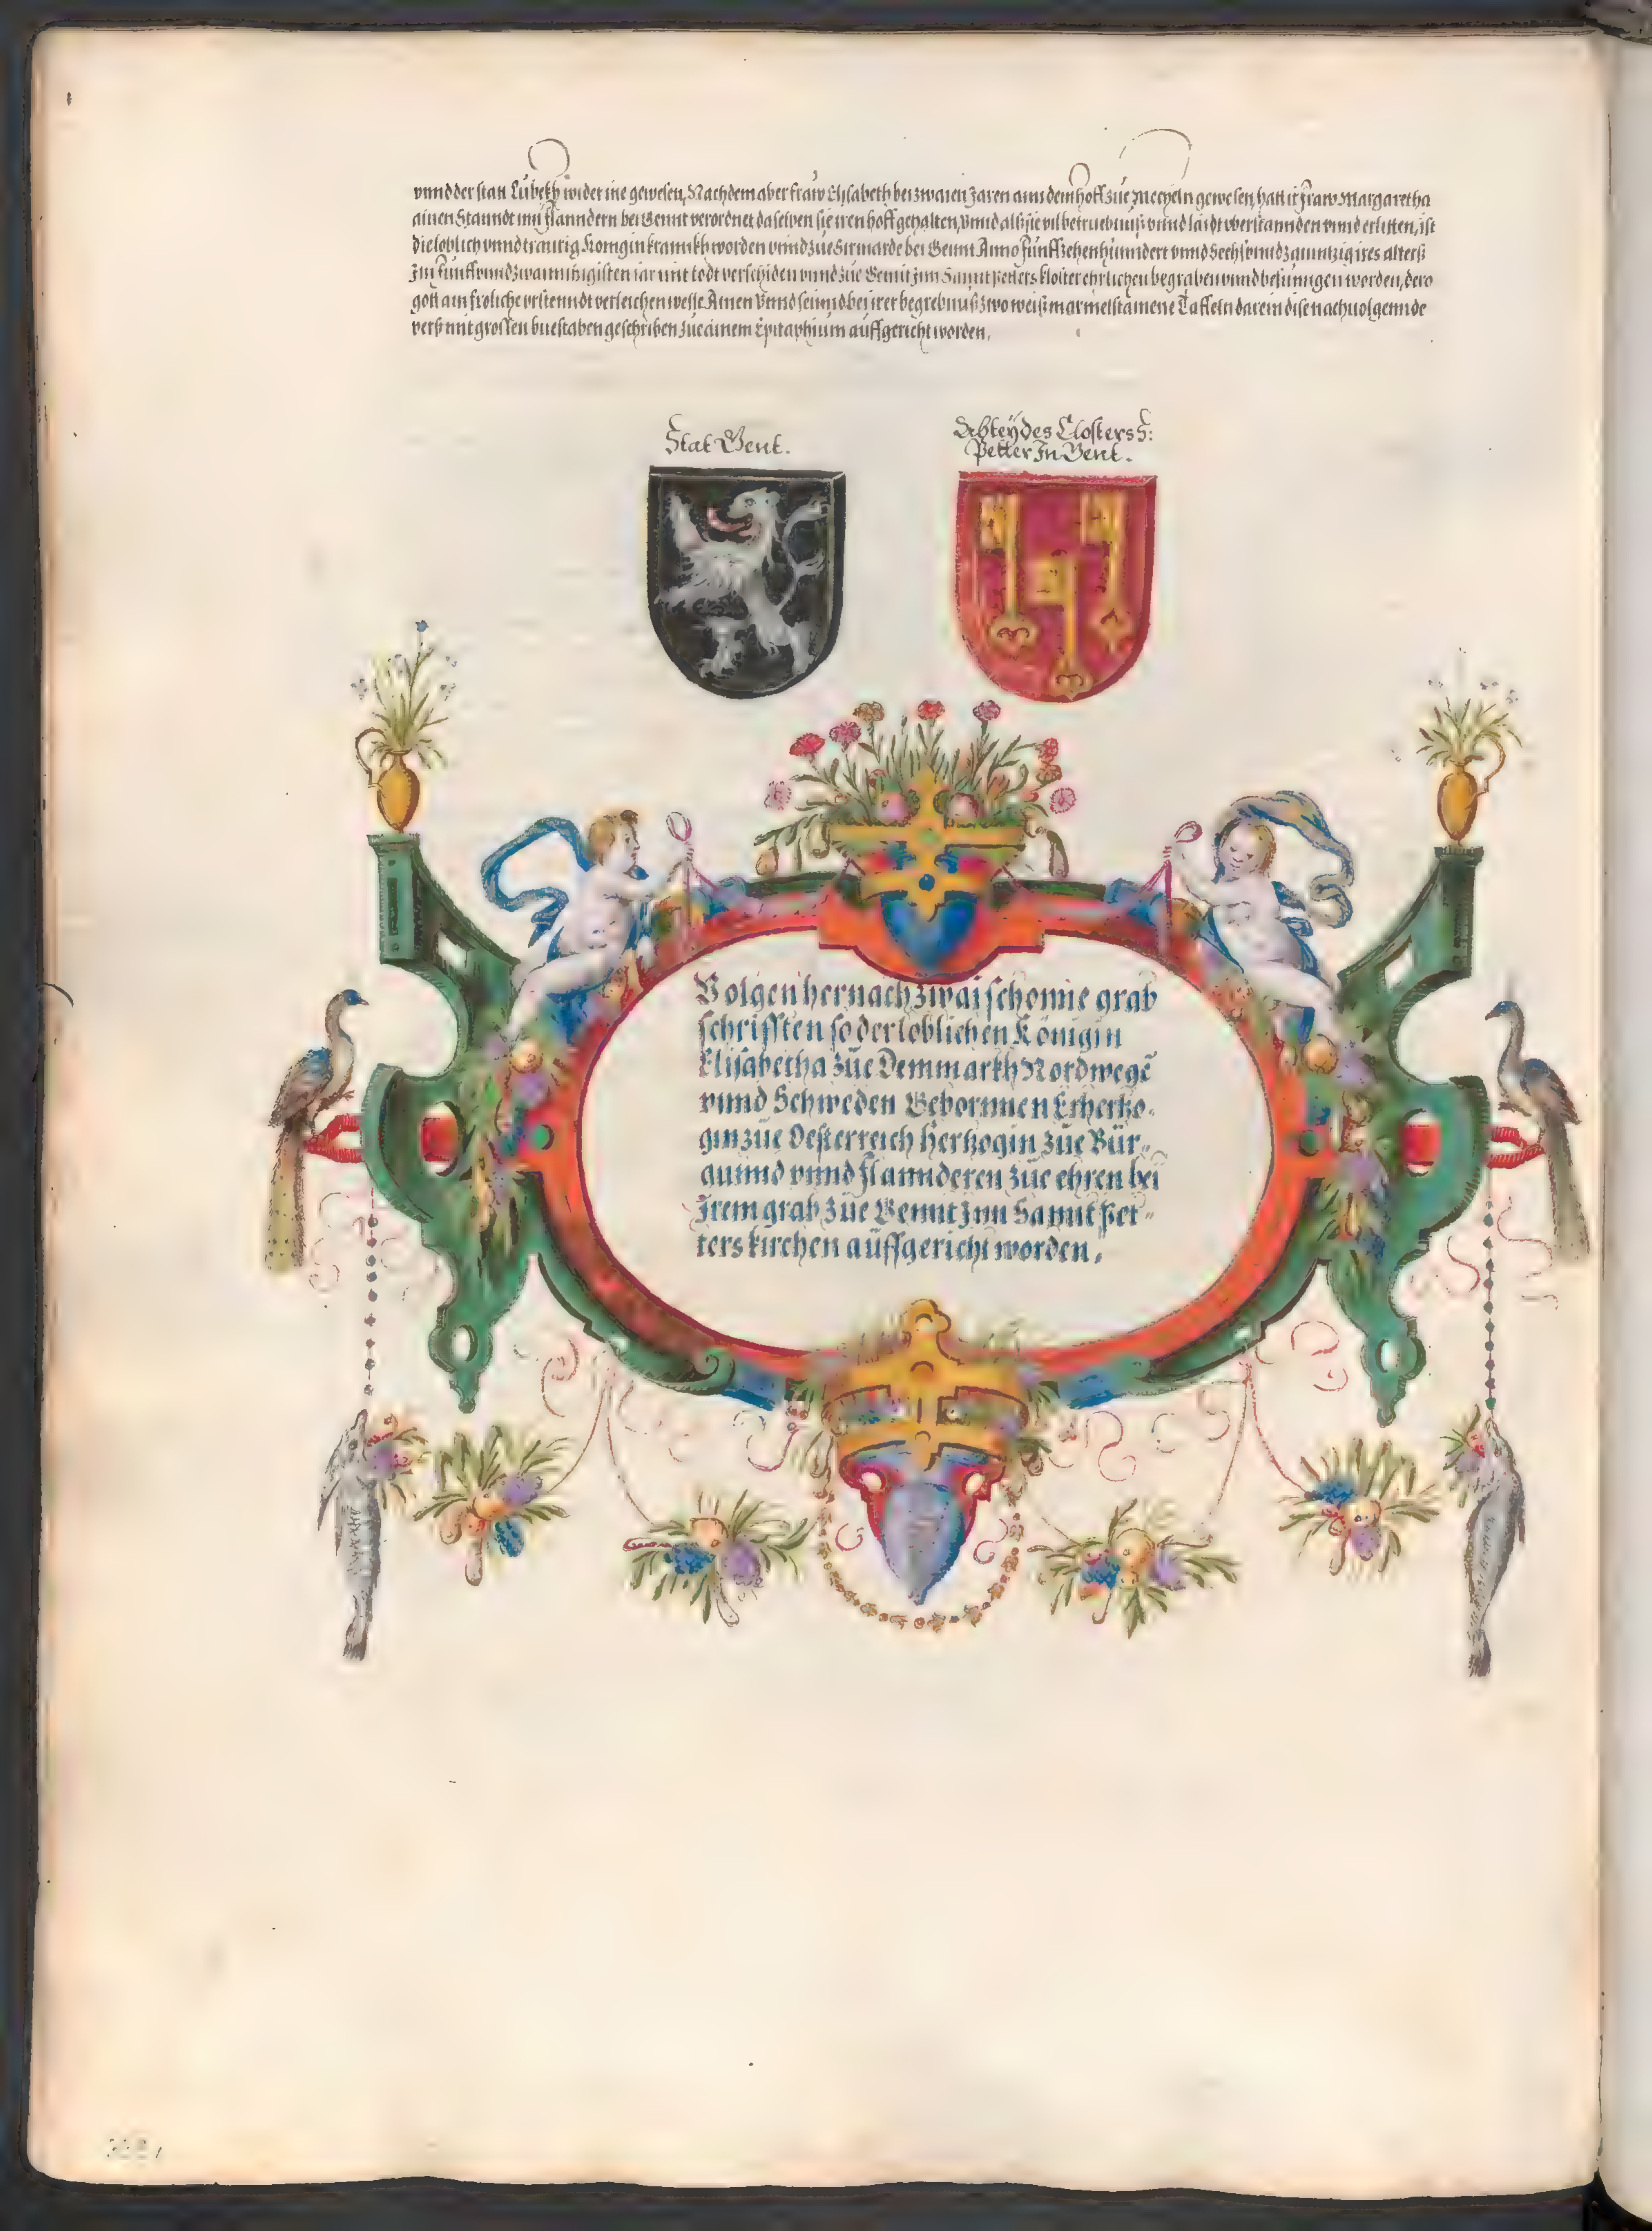 vnnd der statt Lübekh wider ine gewesen, Nachdem aber fraw Elisabeth bei zwaien Jaren ann dem hoff zue Mecheln gewesen, hatt ir fraw Margaretha
ainen Staundt inn flanndern bei Gennt verordnet daselben sie iren hoff gehalten, vnnd als sie vil betruebnuß vnnd laidt vberstannden vnnd erlitten, ist
die loblich vnnd traurig Königin krannkh worden vnnd zue Surmarde bei Gennt Anno funffzehenhunndert vnnd Sechs vnnd zwanntzig ires alterß
Im funff vnnd zwanntzigisten iar mit todt verschiden vnnd zue Gennt jnn Sannt petters kloster ehrlichen begraben vnnd besunngen worden, dero
gott ain froliche vrstenndt verleichen welle Amen Vnnd seinnd bei irer begrebnuß zwo weiß marmelstainene Taffeln darein dise nachuolgennde
verß mit grossen buestaben geschriben zue ainem Epitaphium auffgericht worden.
Stat Gent.
Abtey des Closters S:
Petter In Gent.
Volgen hernach zwai schonne grab
schrifften so der loblichen Königin
Elisabetha züe Dennmarkh Nordwegē
vnnd Schweden Gebornnen Ertzhertzo-
gin züe Oesterreich hertzogin züe Bür-
gunnd vnnd flannderen züe ehren bei
Irem grab züe Gennt Inn Sannt Pet-
ters kirchen auffgericht worden.